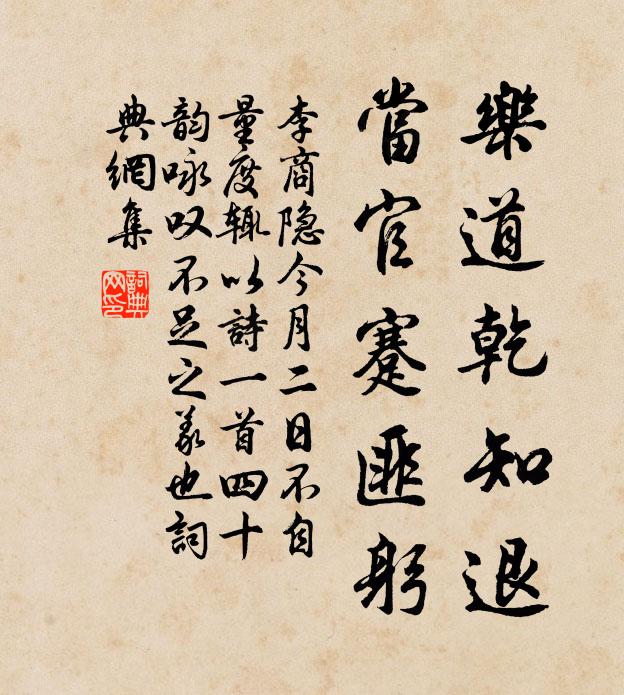 樂道乾知退
當官蹇匪躬
李商隐今月二日不自
量度輒以詩一首四十
韵咏叹不足之義也詞
典網集
詞典
网印